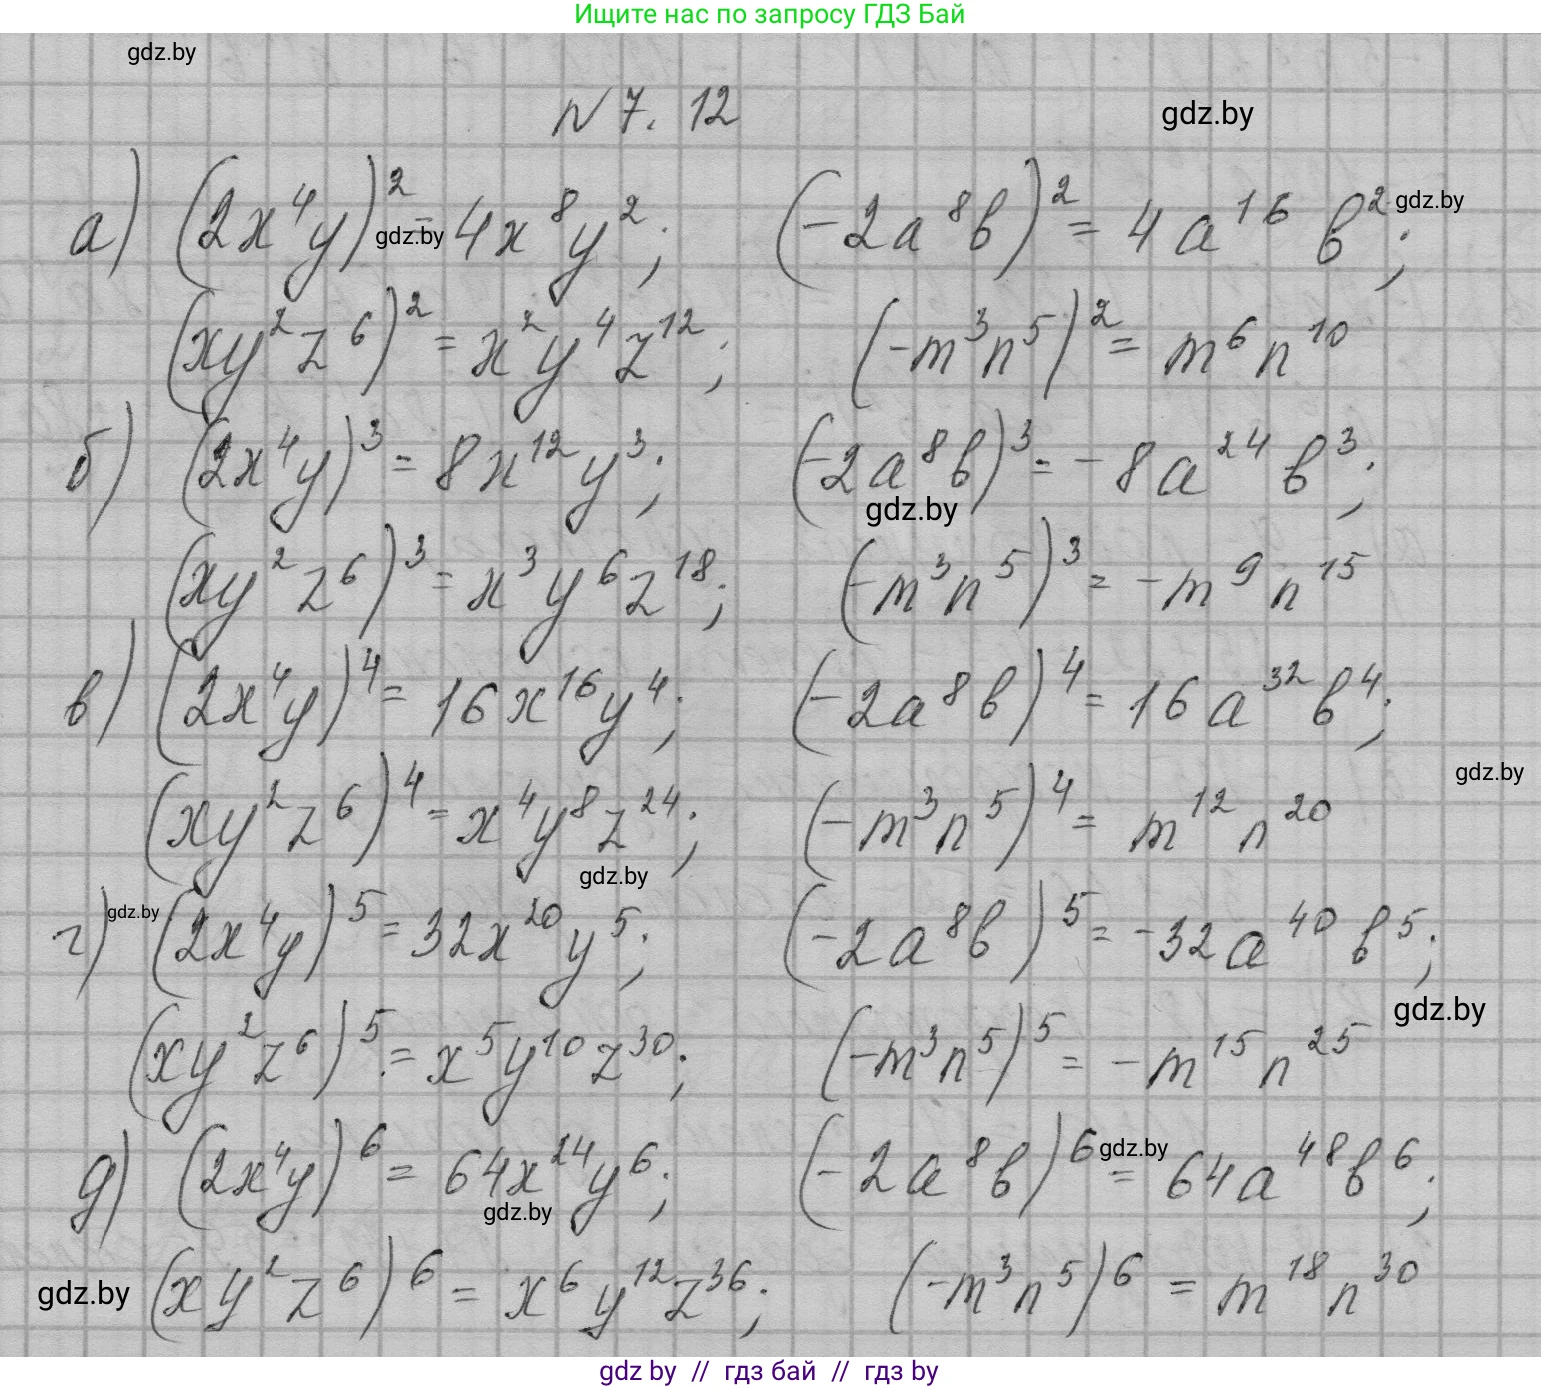 Ищите нас по запросу ГДЗ Бай
gdz.by
N 7. 12
gdz.by
а) (2x⁴y)² = 4x⁸y²; (-2a⁸b)² = 4a¹⁶b²;
gdz.by
gdz.by
(xy²z⁶)² = x²y⁴z¹²; (-m³n⁵)² = m⁶n¹⁰
б) (2x⁴y)³ = 8x¹²y³; (-2a⁸b)³ = -8a²⁴b³;
gdz.by
(xy²z⁶)³ = x³y⁶z¹⁸; (-m³n⁵)³ = -m⁹n¹⁵
в) (2x⁴y)⁴ = 16x¹⁶y⁴; (-2a⁸b)⁴ = 16a³²b⁴;
gdz.by
(xy²z⁶)⁴ = x⁴y⁸z²⁴; (-m³n⁵)⁴ = m¹²n²⁰
gdz.by
г) (2x⁴y)⁵ = 32x²⁰y⁵; (-2a⁸b)⁵ = -32a⁴⁰b⁵;
gdz.by
gdz.by
(xy²z⁶)⁵ = x⁵y¹⁰z³⁰; (-m³n⁵)⁵ = -m¹⁵n²⁵
д) (2x⁴y)⁶ = 64x²⁴y⁶; (-2a⁸b)⁶ = 64a⁴⁸b⁶;
gdz.by
gdz.by
gdz.by
(xy²z⁶)⁶ = x⁶y¹²z³⁶; (-m³n⁵)⁶ = m¹⁸n³⁰
gdz by // гдз бай // гдз by